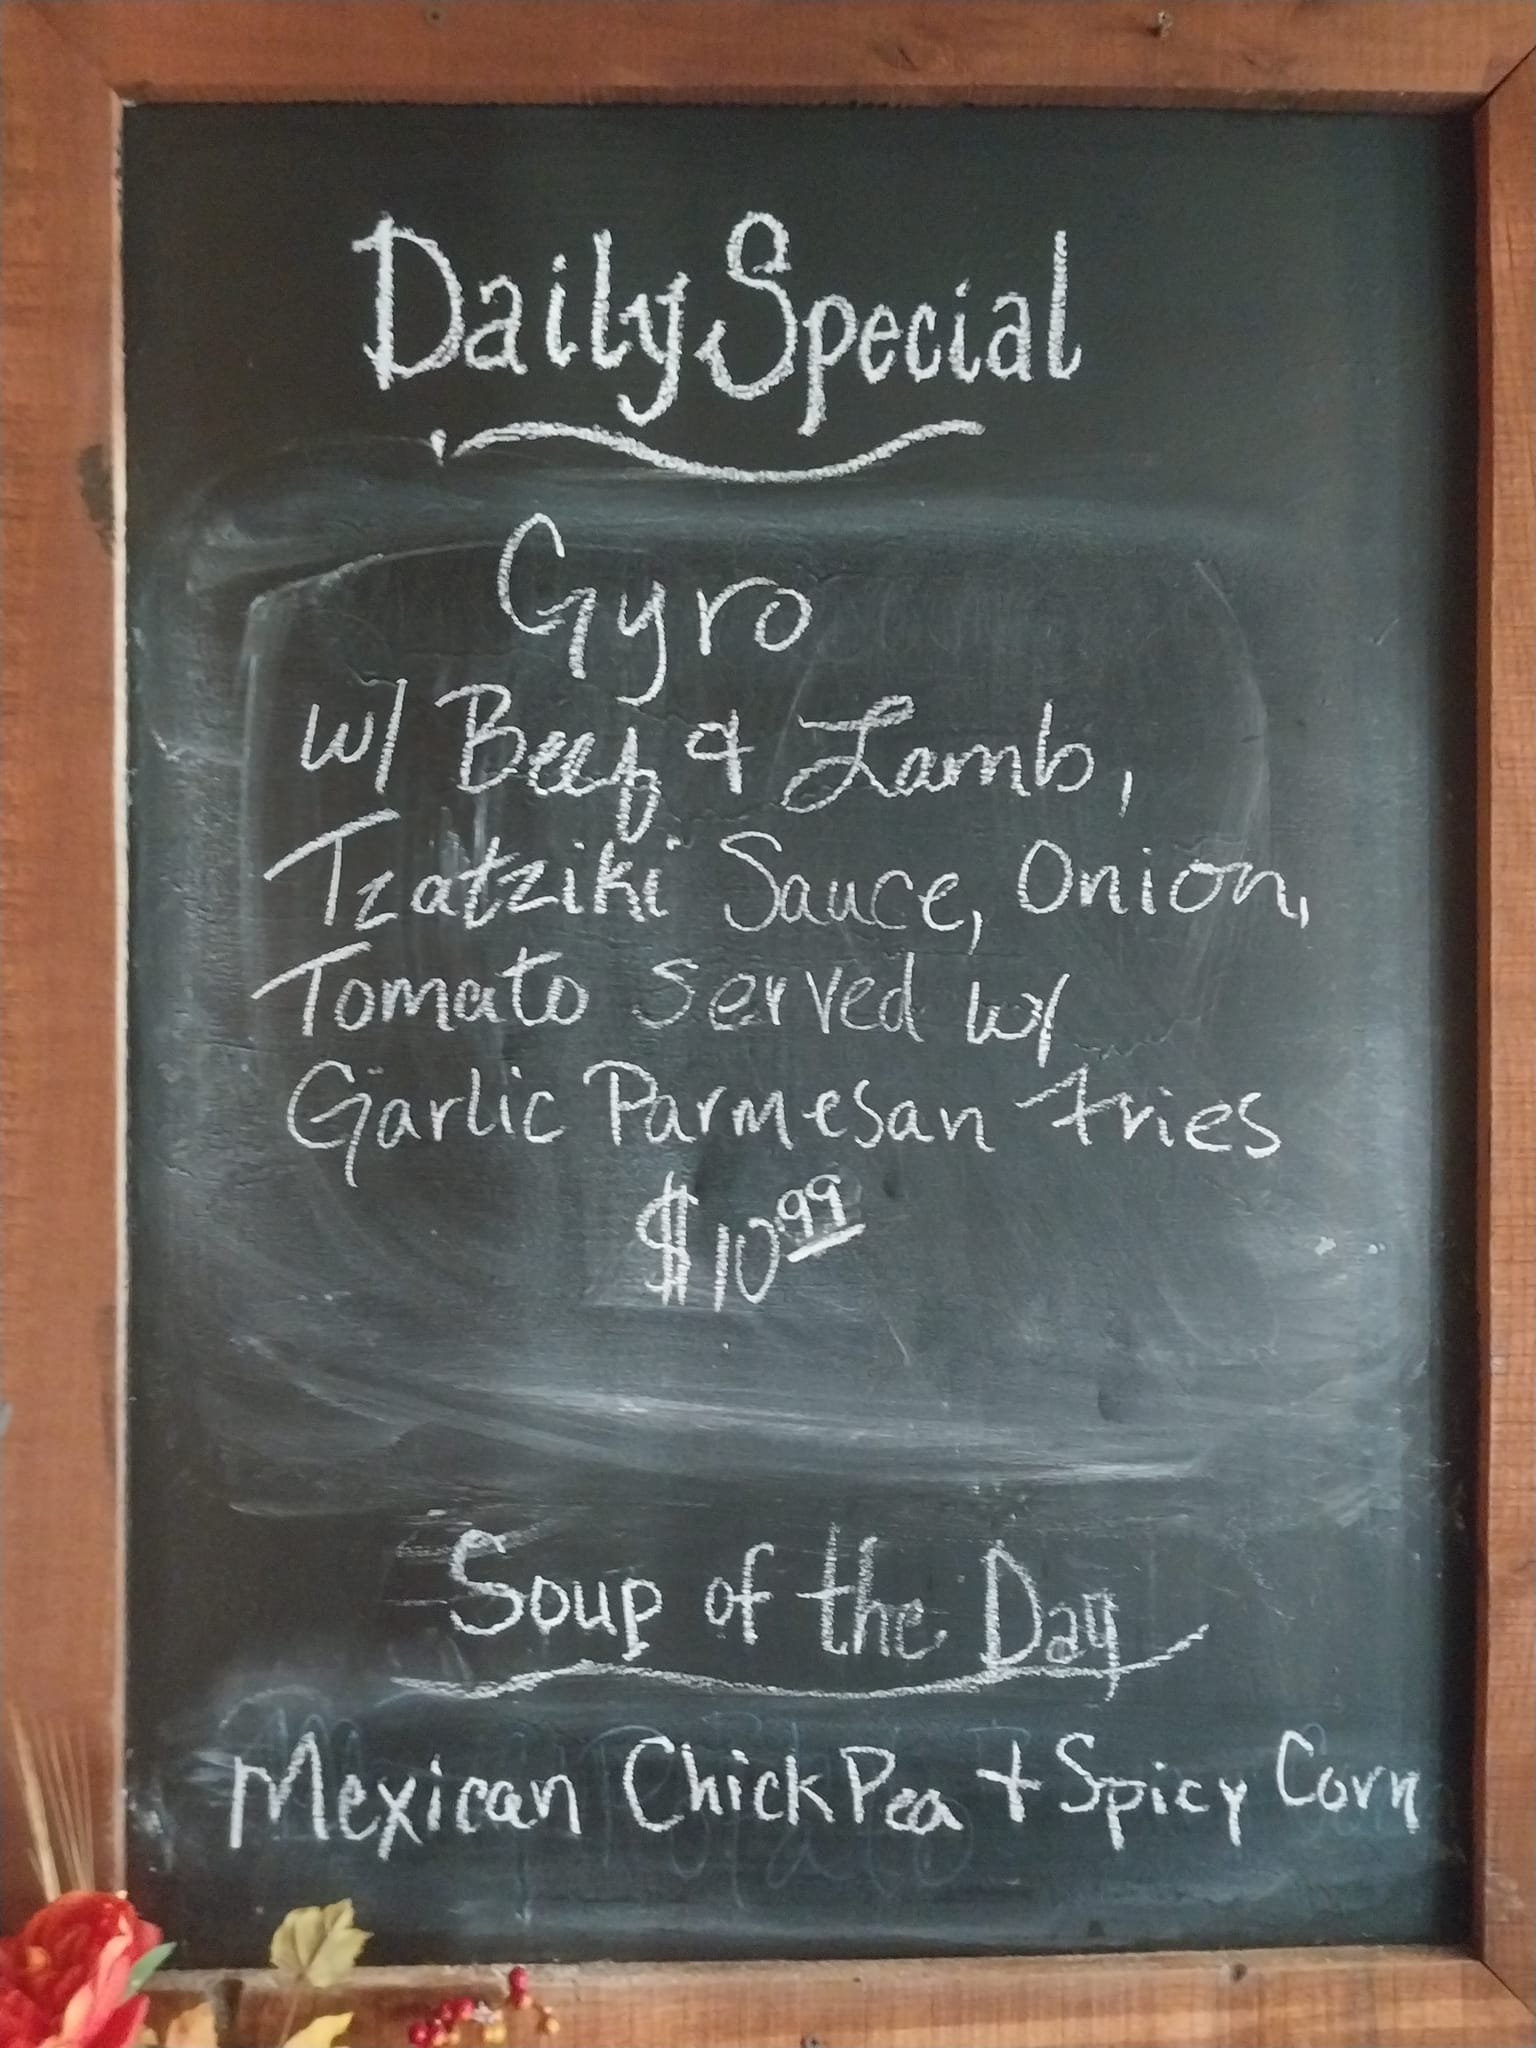 Daily Special
Gyro
w/ Beef & Lamb,
Tzatziki Sauce, Onion,
Tomato served w/
Garlic Parmesan fries
$10.99
Soup of the Day
Mexican ChickPea + Spicy Corn